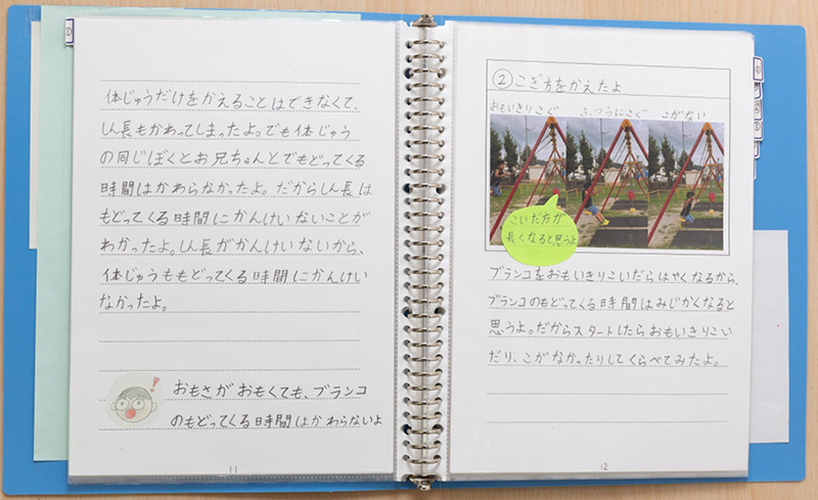 体じゅうだけをかえることはできなくて、
しん長もかわってしまったよ。でも体じゅう
の同じぼくとお兄ちゃんとでもどってくる
時間はかわらなかったよ。だからしん長は
もどってくる時間にかんけいないことが
わかったよ。しん長がかんけいないから、
体じゅうももどってくる時間にかんけい
なかったよ。
おもさがおもくても、ブランコ
のもどってくる時間はかわらないよ
11
②こぎ方をかえたよ
おもいきりこぐ ふつうにこぐ こがない
こいだ方が
長くなると思うよ
ブランコをおもいきりこいだらはやくなるから、
ブランコのもどってくる時間はみじかくなると
思うよ。だからスタートしたらおもいきりこい
だり、こがなかったりしてくらべてみたよ。
12